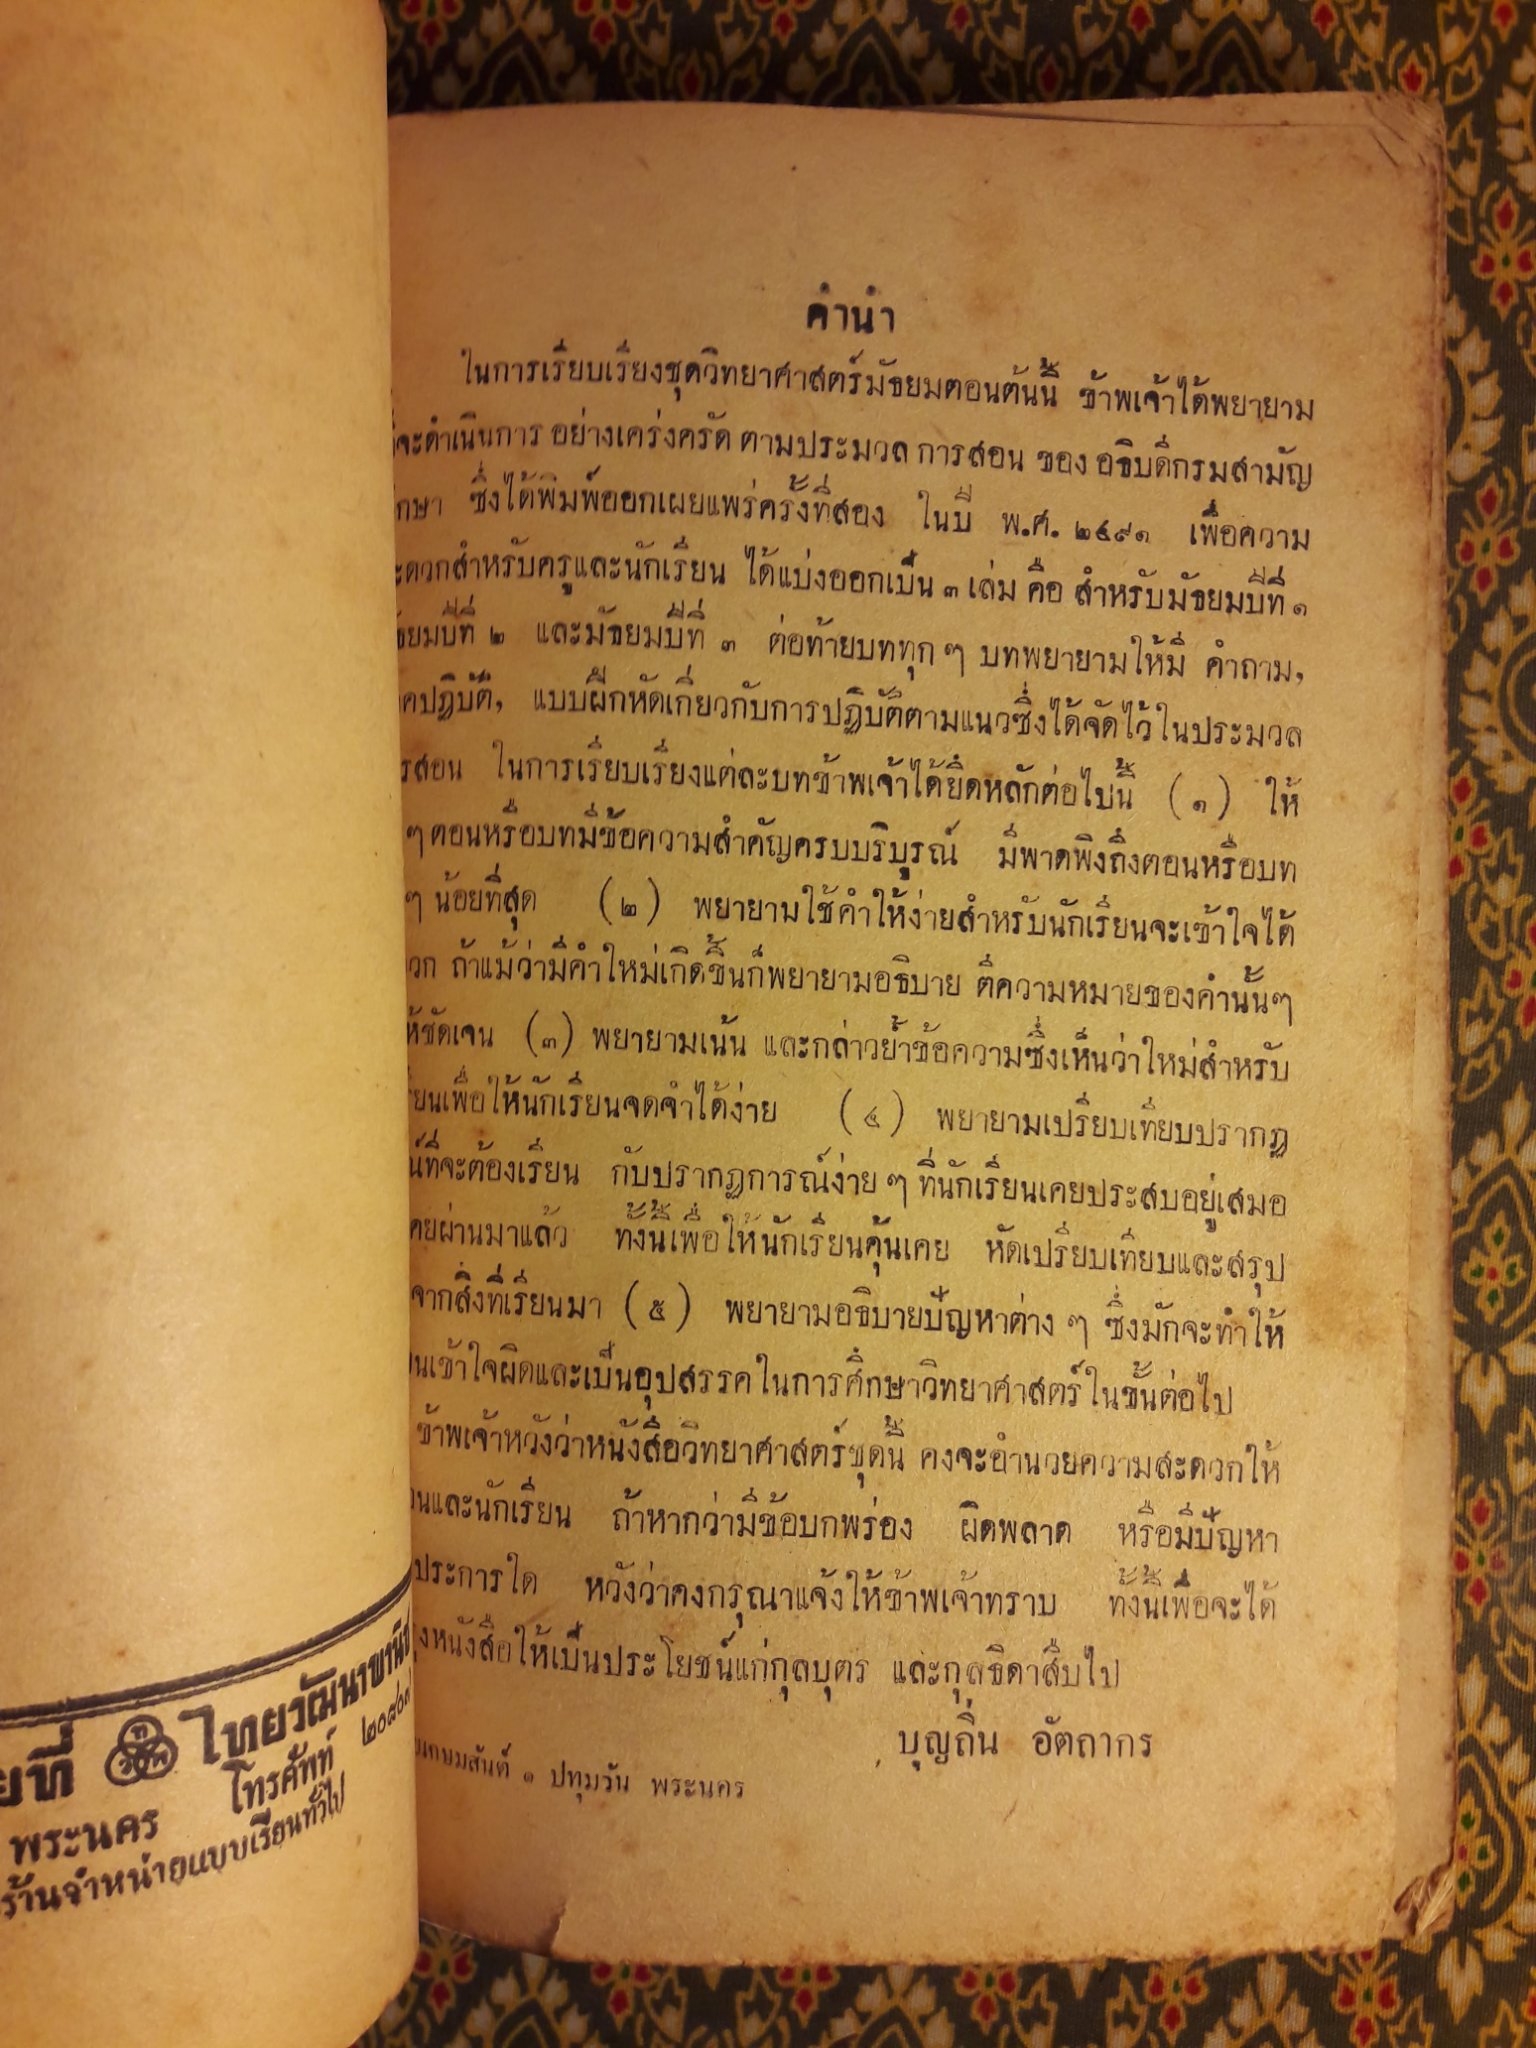 คำนำ
ในการเรียบเรียงชุดวิทยาศาสตร์มัธยมตอนต้นนี้ ข้าพเจ้าได้พยายาม
จะดำเนินการ อย่างเคร่งครัด ตามประมวล การสอน ของ อธิบดีกรมสามัญ
กษา ซึ่งได้พิมพ์ออกเผยแพร่ครั้งที่สอง ในปี พ.ศ. ๒๔๙๑ เพื่อความ
ะดวกสำหรับครูและนักเรียน ได้แบ่งออกเป็น ๓ เล่ม คือ สำหรับมัธยมปีที่ ๑
ธยมปีที่ ๒ และมัธยมปีที่ ๓ ต่อท้ายบททุก ๆ บทพยายามให้มี คำถาม,
คปฏิบัติ, แบบฝึกหัดเกี่ยวกับการปฏิบัติตามแนวซึ่งได้จัดไว้ในประมวล
รสอน ในการเรียบเรียงแต่ละบทข้าพเจ้าได้ยึดหลักต่อไปนี้ (๑) ให้
ๆ ตอนหรือบทมีข้อความสำคัญครบบริบูรณ์ มีพาดพิงถึงตอนหรือบท
ๆ น้อยที่สุด (๒) พยายามใช้คำให้ง่ายสำหรับนักเรียนจะเข้าใจได้
วก ถ้าแม้ว่ามีคำใหม่เกิดขึ้นก็พยายามอธิบาย ตีความหมายของคำนั้นๆ
ห้ชัดเจน (๓) พยายามเน้น และกล่าวย้ำข้อความซึ่งเห็นว่าใหม่สำหรับ
รียนเพื่อให้นักเรียนจดจำได้ง่าย (๔) พยายามเปรียบเทียบปรากฏ
ณ์ที่จะต้องเรียน กับปรากฏการณ์ง่าย ๆ ที่นักเรียนเคยประสบอยู่เสมอ
คยผ่านมาแล้ว ทั้งนี้เพื่อให้นักเรียนคุ้นเคย หัดเปรียบเทียบและสรุป
จากสิ่งที่เรียนมา (๕) พยายามอธิบายปัญหาต่าง ๆ ซึ่งมักจะทำให้
นเข้าใจผิดและเป็นอุปสรรคในการศึกษาวิทยาศาสตร์ในชั้นต่อไป
ข้าพเจ้าหวังว่าหนังสือวิทยาศาสตร์ชุดนี้ คงจะอำนวยความสะดวกให้
นและนักเรียน ถ้าหากว่ามีข้อบกพร่อง ผิดพลาด หรือมีปัญหา
ประการใด หวังว่าคงกรุณาแจ้งให้ข้าพเจ้าทราบ ทั้งนี้เพื่อจะได้
งหนังสือให้เป็นประโยชน์แก่กุลบุตร และกุลธิดาสืบไป
บุญถิ่น อัตถากร
เกษมสันต์ ๑ ปทุมวัน พระนคร
ยที่ ทวพ ไทยวัฒนาพานิช
พระนคร โทรศัพท์
ร้านจำหน่ายแบบเรียนทั่วไป